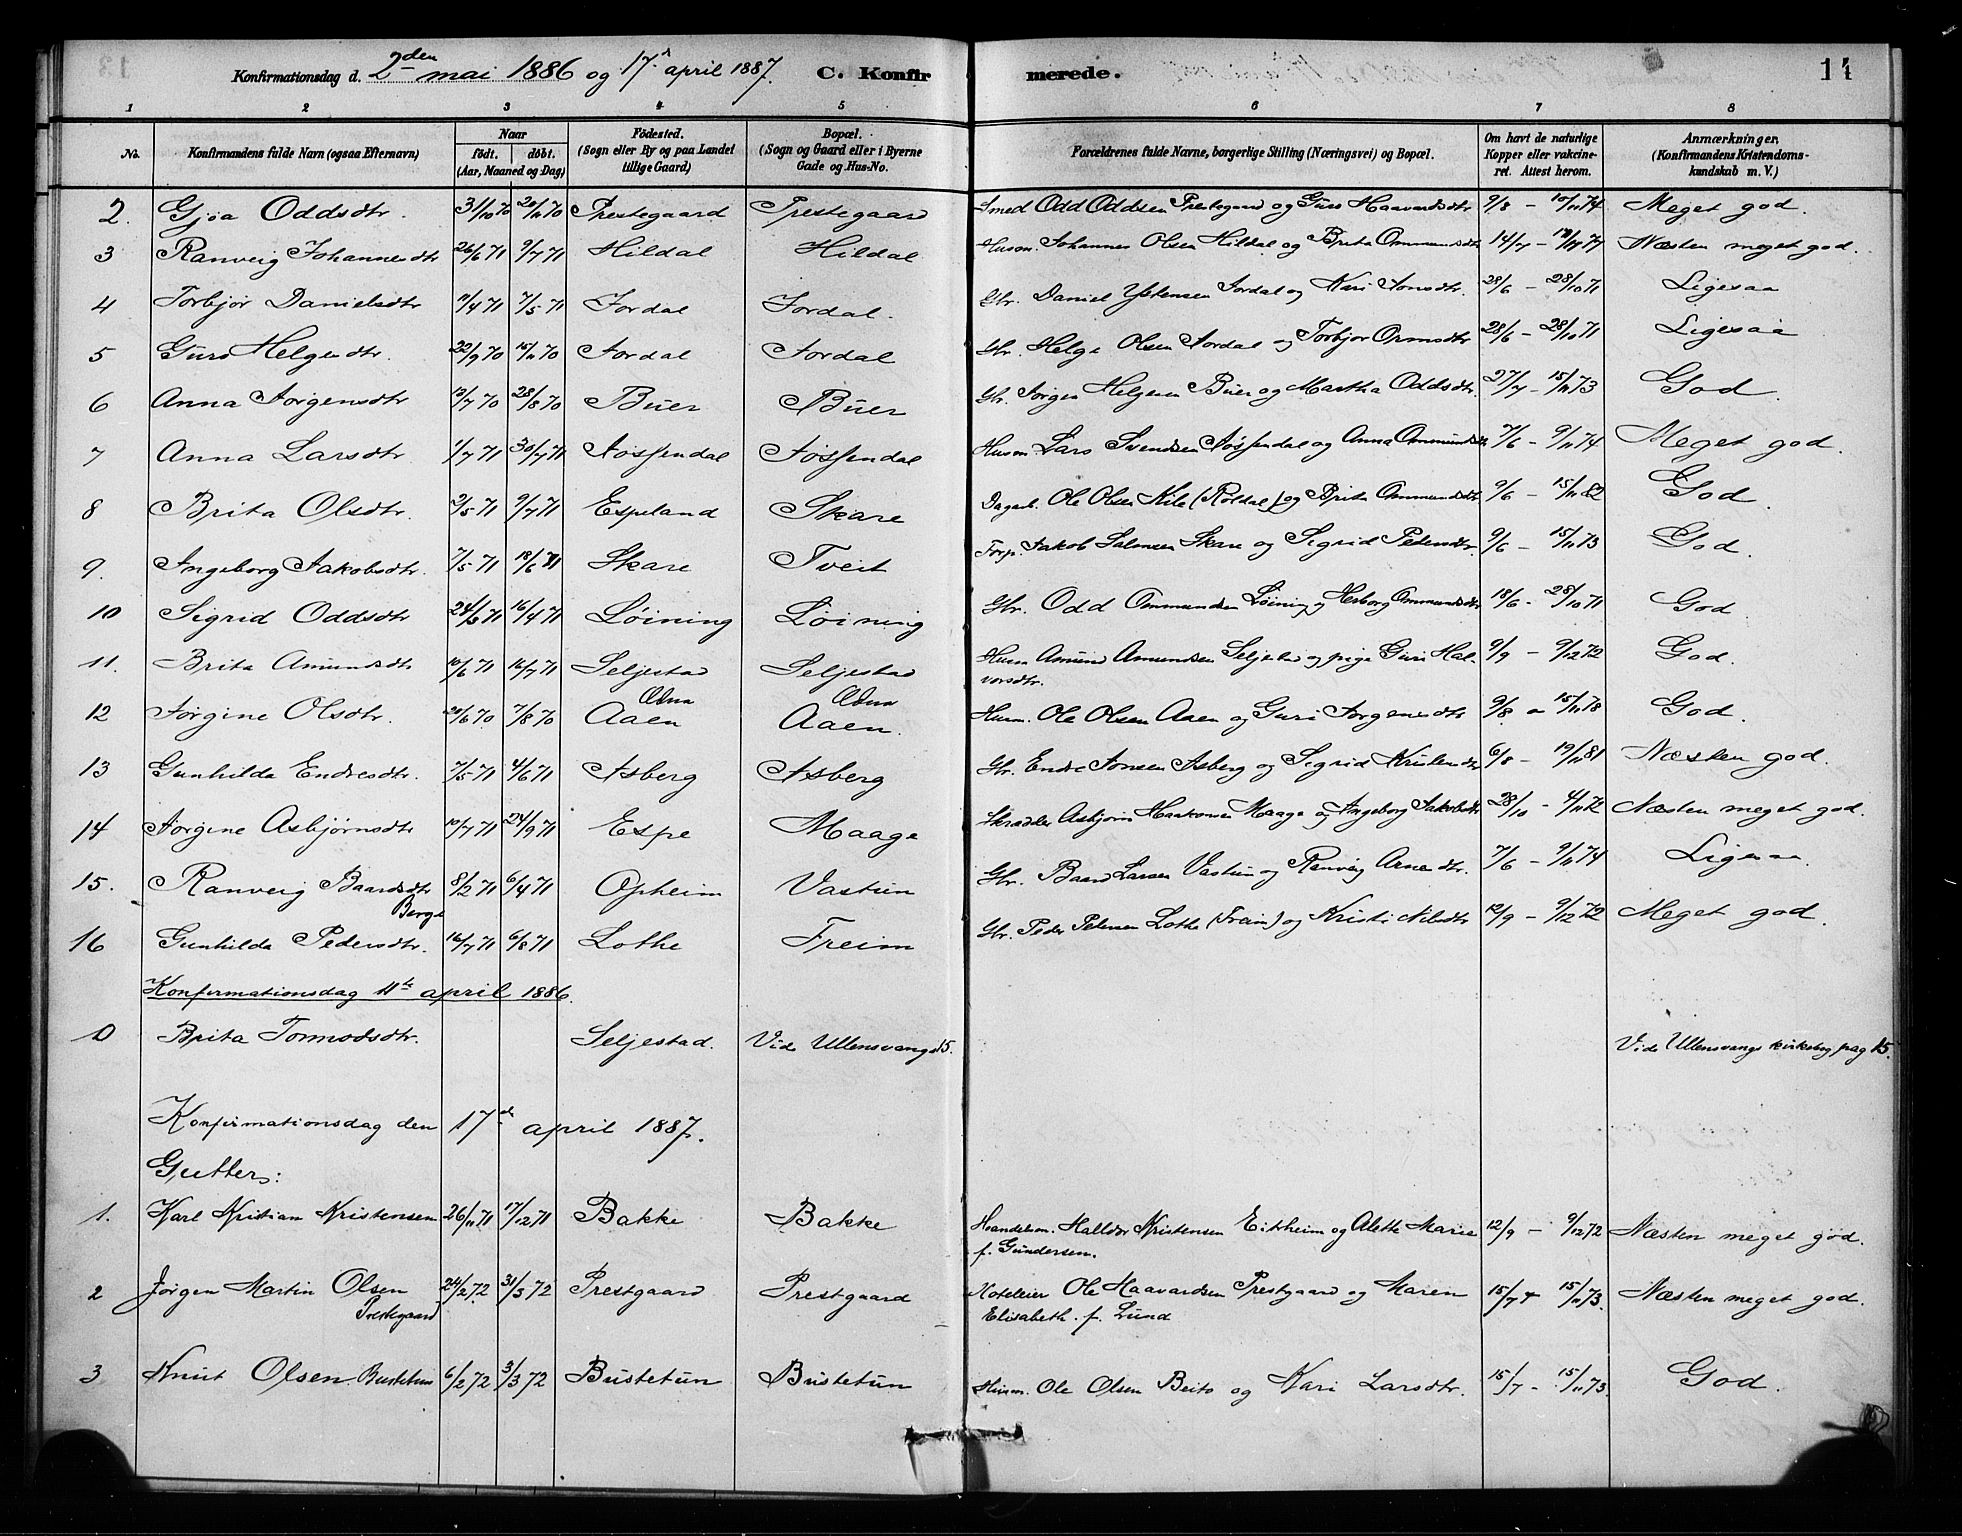 Konfirmationsdag d. 2den mai 1886 og 17d april 1887. C. Konfir merede. 14
1 2 3 4 5 6 7 8
No. Konfirmandens fulde Navn (ogsaa Efternavn) Naar födt. döbt. (Aar, Maaned og Dag) Födested. (Sogn eller By og paa Landet tillige Gaard) Bopæl. (Sogn og Gaard eller i Byerne Gade og Hus-No. Forældrenes fulde Navne, borgerlige Stilling (Næringsvei) og Bopæl. Om havt de naturlige Kopper eller vakcineret. Attest herom. Anmærkninger. (Konfirmandens Kristendomskundskab m. V.)
2. Gjøa Oddsdtr. 31/10 70 20/11 70 Prestegaard Prestegaard Smed Odd Oddsen Prestegaard og Guro Haavardsdtr 9/8 - 10/11 74 Meget god.
3 Ranveig Johannesdtr 26/6 71 9/7 71 Hildal Hildal Husm. Johannes Olsen Hildal og Brita Ommundsdtr 14/7 - Næsten meget god.
4 Torbjør Danielsdtr 7/5 71 Jordal Jordal. Gbr. Daniel Jordal og Kari Jonsdtr. 28/6 - 28/10 71 Ligesaa
5 Guro Helgesdtr. 22/9 70 15/11 70 Jordal Jordal Gbr. Helge Olsen Jordal og Torbjør Ormsdtr 28/6 - 28/10 71 Ligesaa
6 Anna Jørgensdtr 13/7 70 28/8 70 Buer Buer Gbr. Jørgen Helgesen Buer og Martha Oddsdtr. 27/7 - 15/11 73 God.
7 Anna Larsdtr. 1/7 71 30/7 71 Jøssendal Jøssendal Husm. Lars Svendsen Jøssendal og Anna Ommundsdtr 7/6 - 9/11 74 Meget god.
8 Brita Olsdtr. 2/5 71 9/7 71 Espeland Skare Dagarb. Ole Olsen Kile (Røldal) og Brita Ommundsdtr 9/6 - 15/11 82 God.
9. Ingeborg Jakobsdtr. 7/5 71 18/6 71 Skare Tveit Forp. Jakob Salomsen Skare og Sigrid Pedersdtr. 9/6 - 15/11 73 God.
10 Sigrid Oddsdtr 16/4 71 Løining Løining Gbr. Odd Ommundsen Løining og Herborg Ommundsdtr 18/6 - 28/10 71 God
11. Brita Amundsdtr 10/6 71 16/7 71 Seljestad Seljestad Husm Amund Amundsen Seljestad og pige Guri Hal-
vorsdtr. 9/9 - 9/12 72 God.
12 Jørgine Olsdtr. 20/6 70 7/8 70 Aaen Aaen. Husm. Ole Olsen Aaen og Guri Jørgensdtr 9/8 - 15/11 78 God.
13 Gunhilda Endresdtr. 7/5 71 4/6 71 Isberg Isberg Gbr. Endre Jonsen Isberg og Sigrid Kristensdtr 6/8 - 19/11 81 Næsten god.
14 Jørgine Asbjørnsdtr 10/7 71 24/9 71 Espe Maage Skrædder Asbjørn Haakonsen Maage og Ingeborg Jakobsdtr 28/10 - 4/11 72 Næsten meget god.
15. Ranveig Baardsdtr 8/2 71 6/4 71 Opheim Vastun Gbr. Baard Larsen Vastun og Ranveig Arnesdtr. 7/6 - 9/11 74 Ligesaa.
Berge
16 Gunhilda Pedersdtr. 16/7 71 6/8 71 Lothe Freim Gbr. Peder Pedersen Lothe (Freim) og Kristi Nilsdtr 12/9 - 9/12 72 Meget god.
Konfirmationsdag 11te april 1886.
0 Brita Tormodsdtr. Seljestad. Vide Ullensvangs 15. Vide Ullensvangs kirkebog pag 15.
Konfirmationsdag den 17de april 1887.
Gutter:
1. Karl Kristian Kristensen 26/11 71 17/12 71 Bakke Bakke Handelsm. Halldor Kristensen Eitrheim og Alette Marie
f. Gundersen. 12/9 - 9/12 72 Næsten meget god.
2 Jørgen Martin Olsen 24/2 72 31/3 72 Prestgaard Prestgaard Hoteleier Ole Haavardsen Prestgaard og Maren
Prestegaard Elisabeth. f. Lund 15/7 + 15/11 73. Næsten meget god.
3 Knut Olsen Bustetun 6/2 72 3/3 72 Bustetun Bustetun Husm. Ole Olsen Beito og Kari Larsdtr. 15/7 - 15/11 73. God.